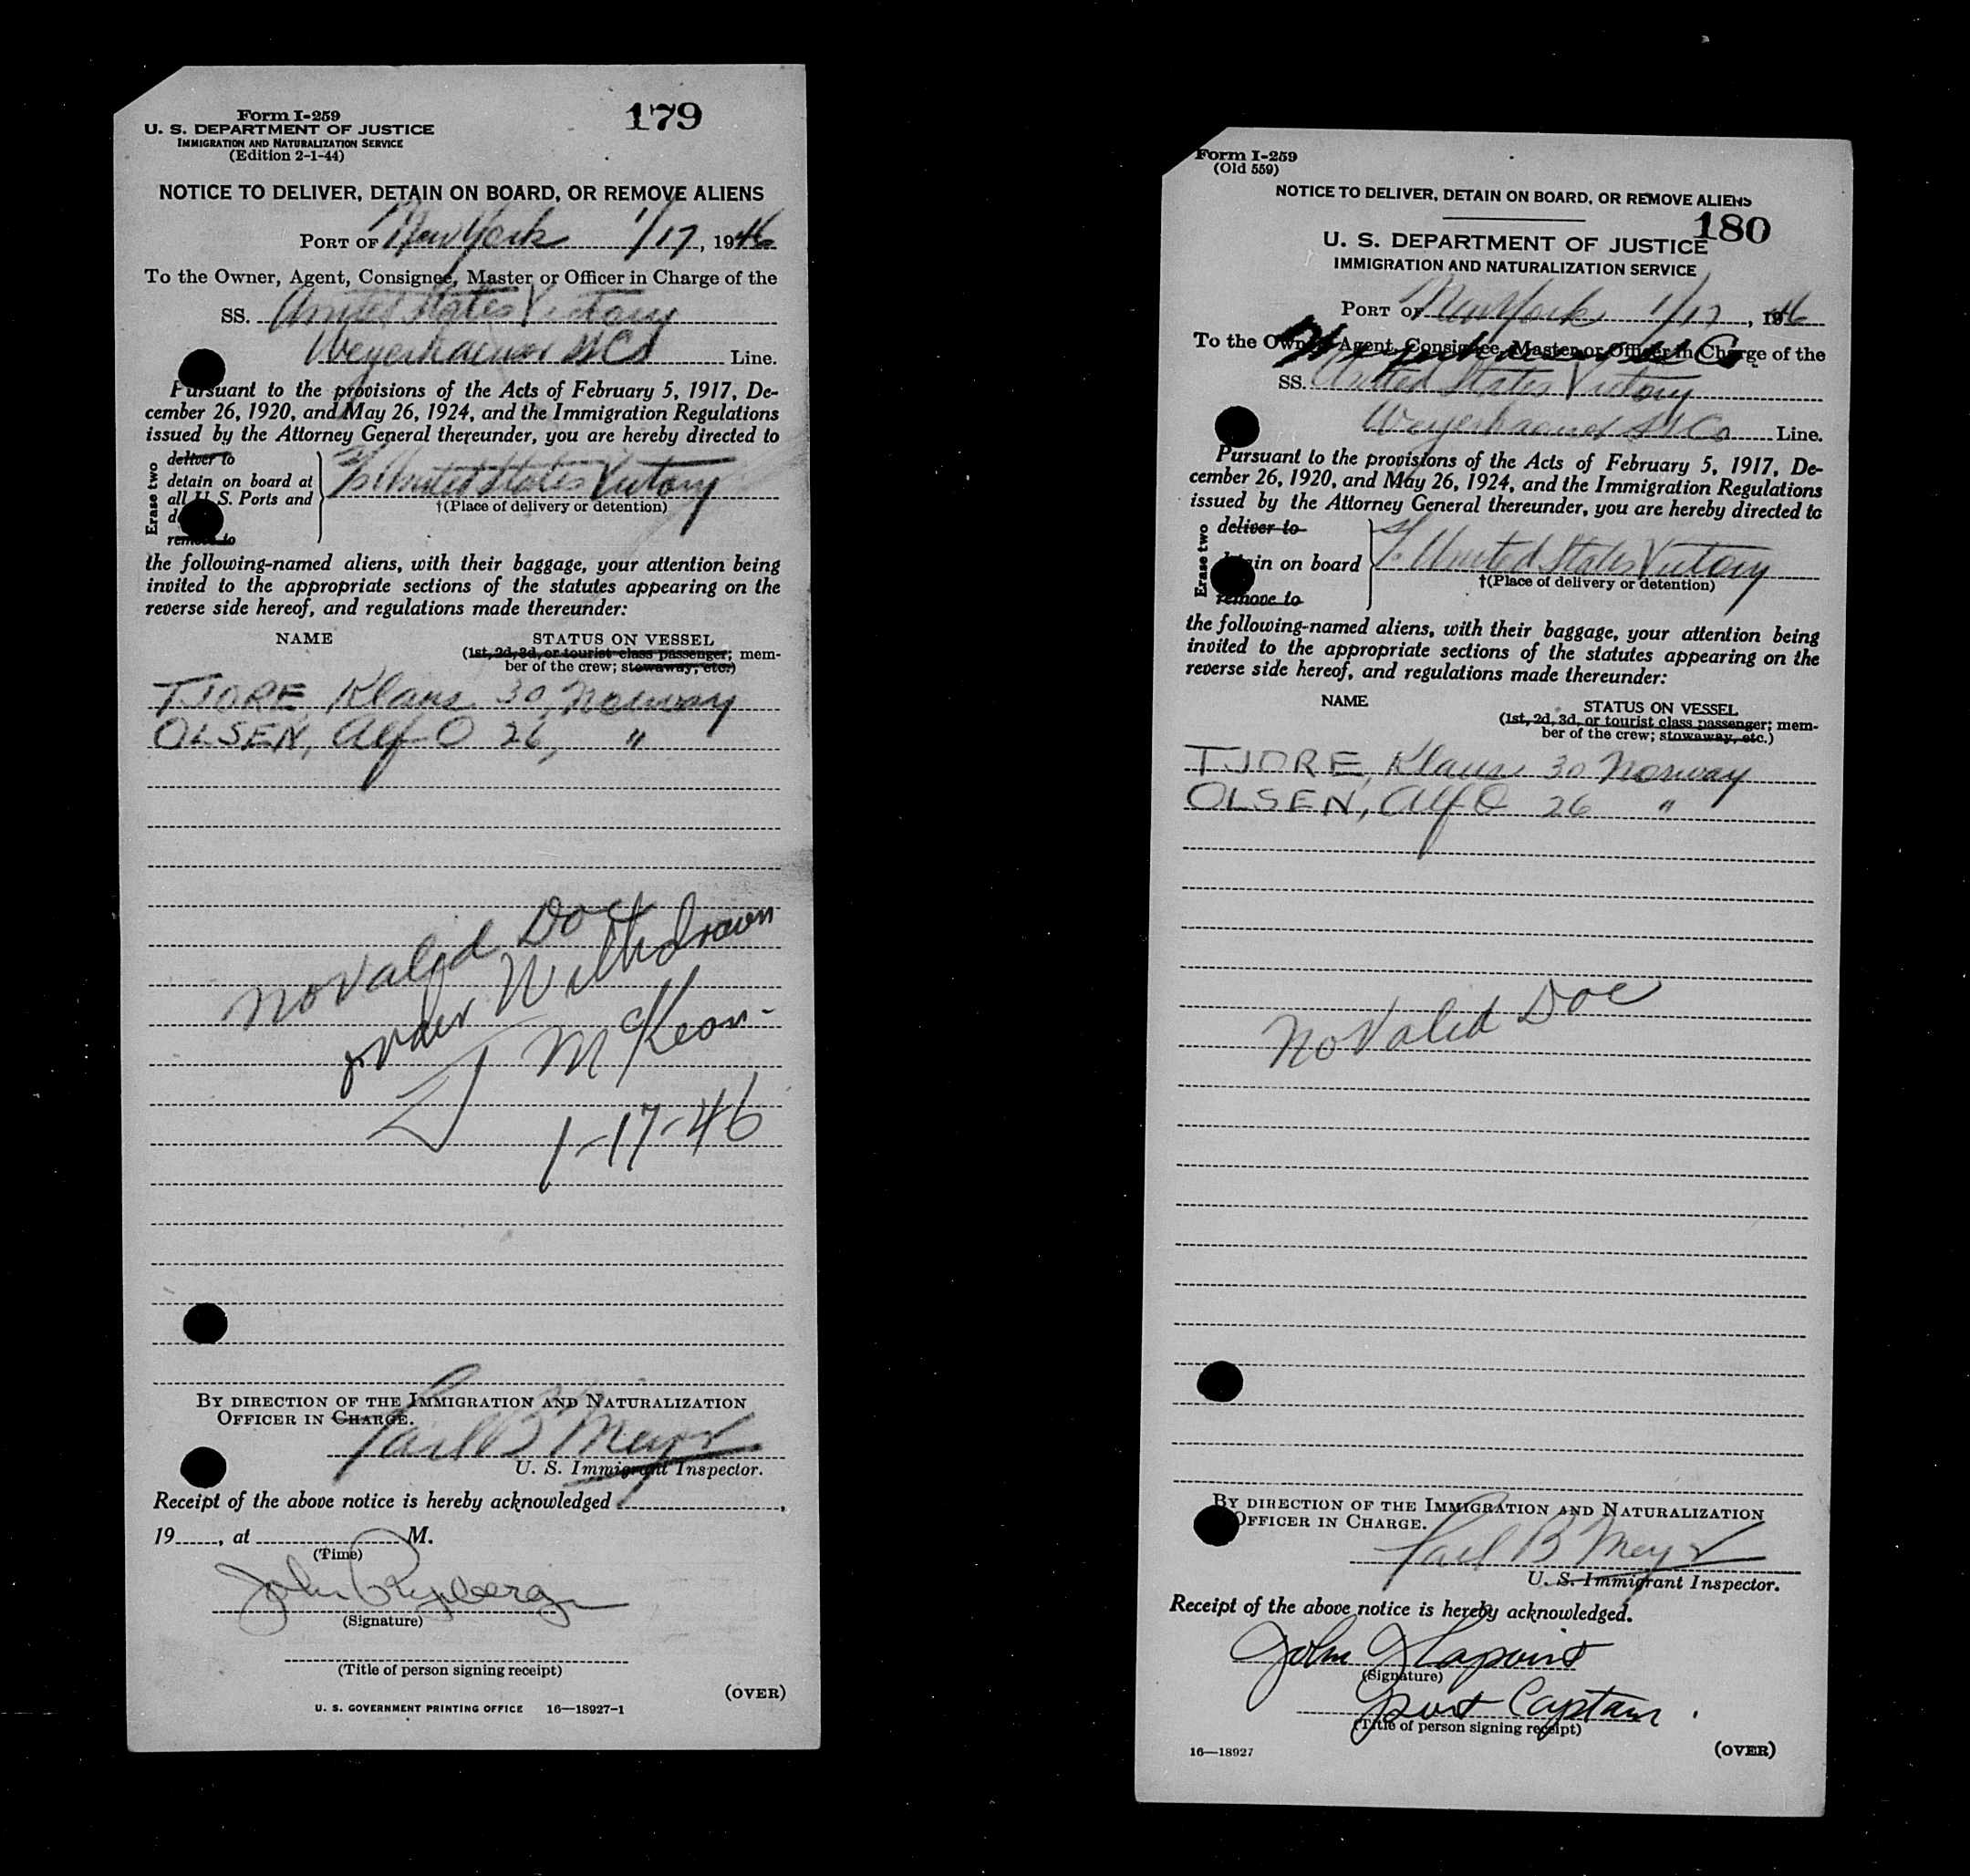 Form I-259
179
U. S. DEPARTMENT OF JUSTICE
IMMIGRATION AND NATURALIZATION SERVICE
(Edition 2-1-44)
NOTICE TO DELIVER, DETAIN ON BOARD, OR REMOVE ALIENS
PORT OF New York 1/17, 1946
To the Owner, Agent, Consignee, Master or Officer in Charge of the
SS. United States Victory
SS Co Line.
Pursuant to the provisions of the Acts of February 5, 1917, De-
cember 26, 1920, and May 26, 1924, and the Immigration Regulations
issued by the Attorney General thereunder, you are hereby directed to
Erase two
deliver to
detain on board at
all U. S. Ports and
remove to
United States Victory
†(Place of delivery or detention)
the following-named aliens, with their baggage, your attention being
invited to the appropriate sections of the statutes appearing on the
reverse side hereof, and regulations made thereunder:
NAME STATUS ON VESSEL
(1st, 2d, 3d, or tourist class passenger; mem-
ber of the crew; stowaway, etc.)
TJORE, Klaus 30, Norway
OLSEN, Alf O 26, "
No Valid Doc
order Withdrawn
McKeon
1-17-46
BY DIRECTION OF THE IMMIGRATION AND NATURALIZATION
OFFICER IN CHARGE.
B Meyer
U. S. Immigrant Inspector.
Receipt of the above notice is hereby acknowledged
19 , at M.
(Time)
John
(Signature)
(Title of person signing receipt)
(OVER)
U. S. GOVERNMENT PRINTING OFFICE 16—18927-1
Form I-259
(Old 559)
NOTICE TO DELIVER, DETAIN ON BOARD, OR REMOVE ALIENS
180
U. S. DEPARTMENT OF JUSTICE
IMMIGRATION AND NATURALIZATION SERVICE
PORT OF New York 1/17, 1946
To the Owner, Agent, Consignee, Master or Officer in Charge of the
SS. United States Victory
SS Co Line.
Pursuant to the provisions of the Acts of February 5, 1917, De-
cember 26, 1920, and May 26, 1924, and the Immigration Regulations
issued by the Attorney General thereunder, you are hereby directed to
Erase two
deliver to
detain on board
remove to
United States Victory
†(Place of delivery or detention)
the following-named aliens, with their baggage, your attention being
invited to the appropriate sections of the statutes appearing on the
reverse side hereof, and regulations made thereunder:
NAME STATUS ON VESSEL
(1st, 2d, 3d, or tourist class passenger; mem-
ber of the crew; stowaway, etc.)
TJORE, Klaus 30 Norway
OLSEN, Alf O 26 "
No Valid Doc
BY DIRECTION OF THE IMMIGRATION AND NATURALIZATION
OFFICER IN CHARGE.
B Meyer
U. S. Immigrant Inspector.
Receipt of the above notice is hereby acknowledged.
John
(Signature)
Port Captain
(Title of person signing receipt)
16—18927
(OVER)